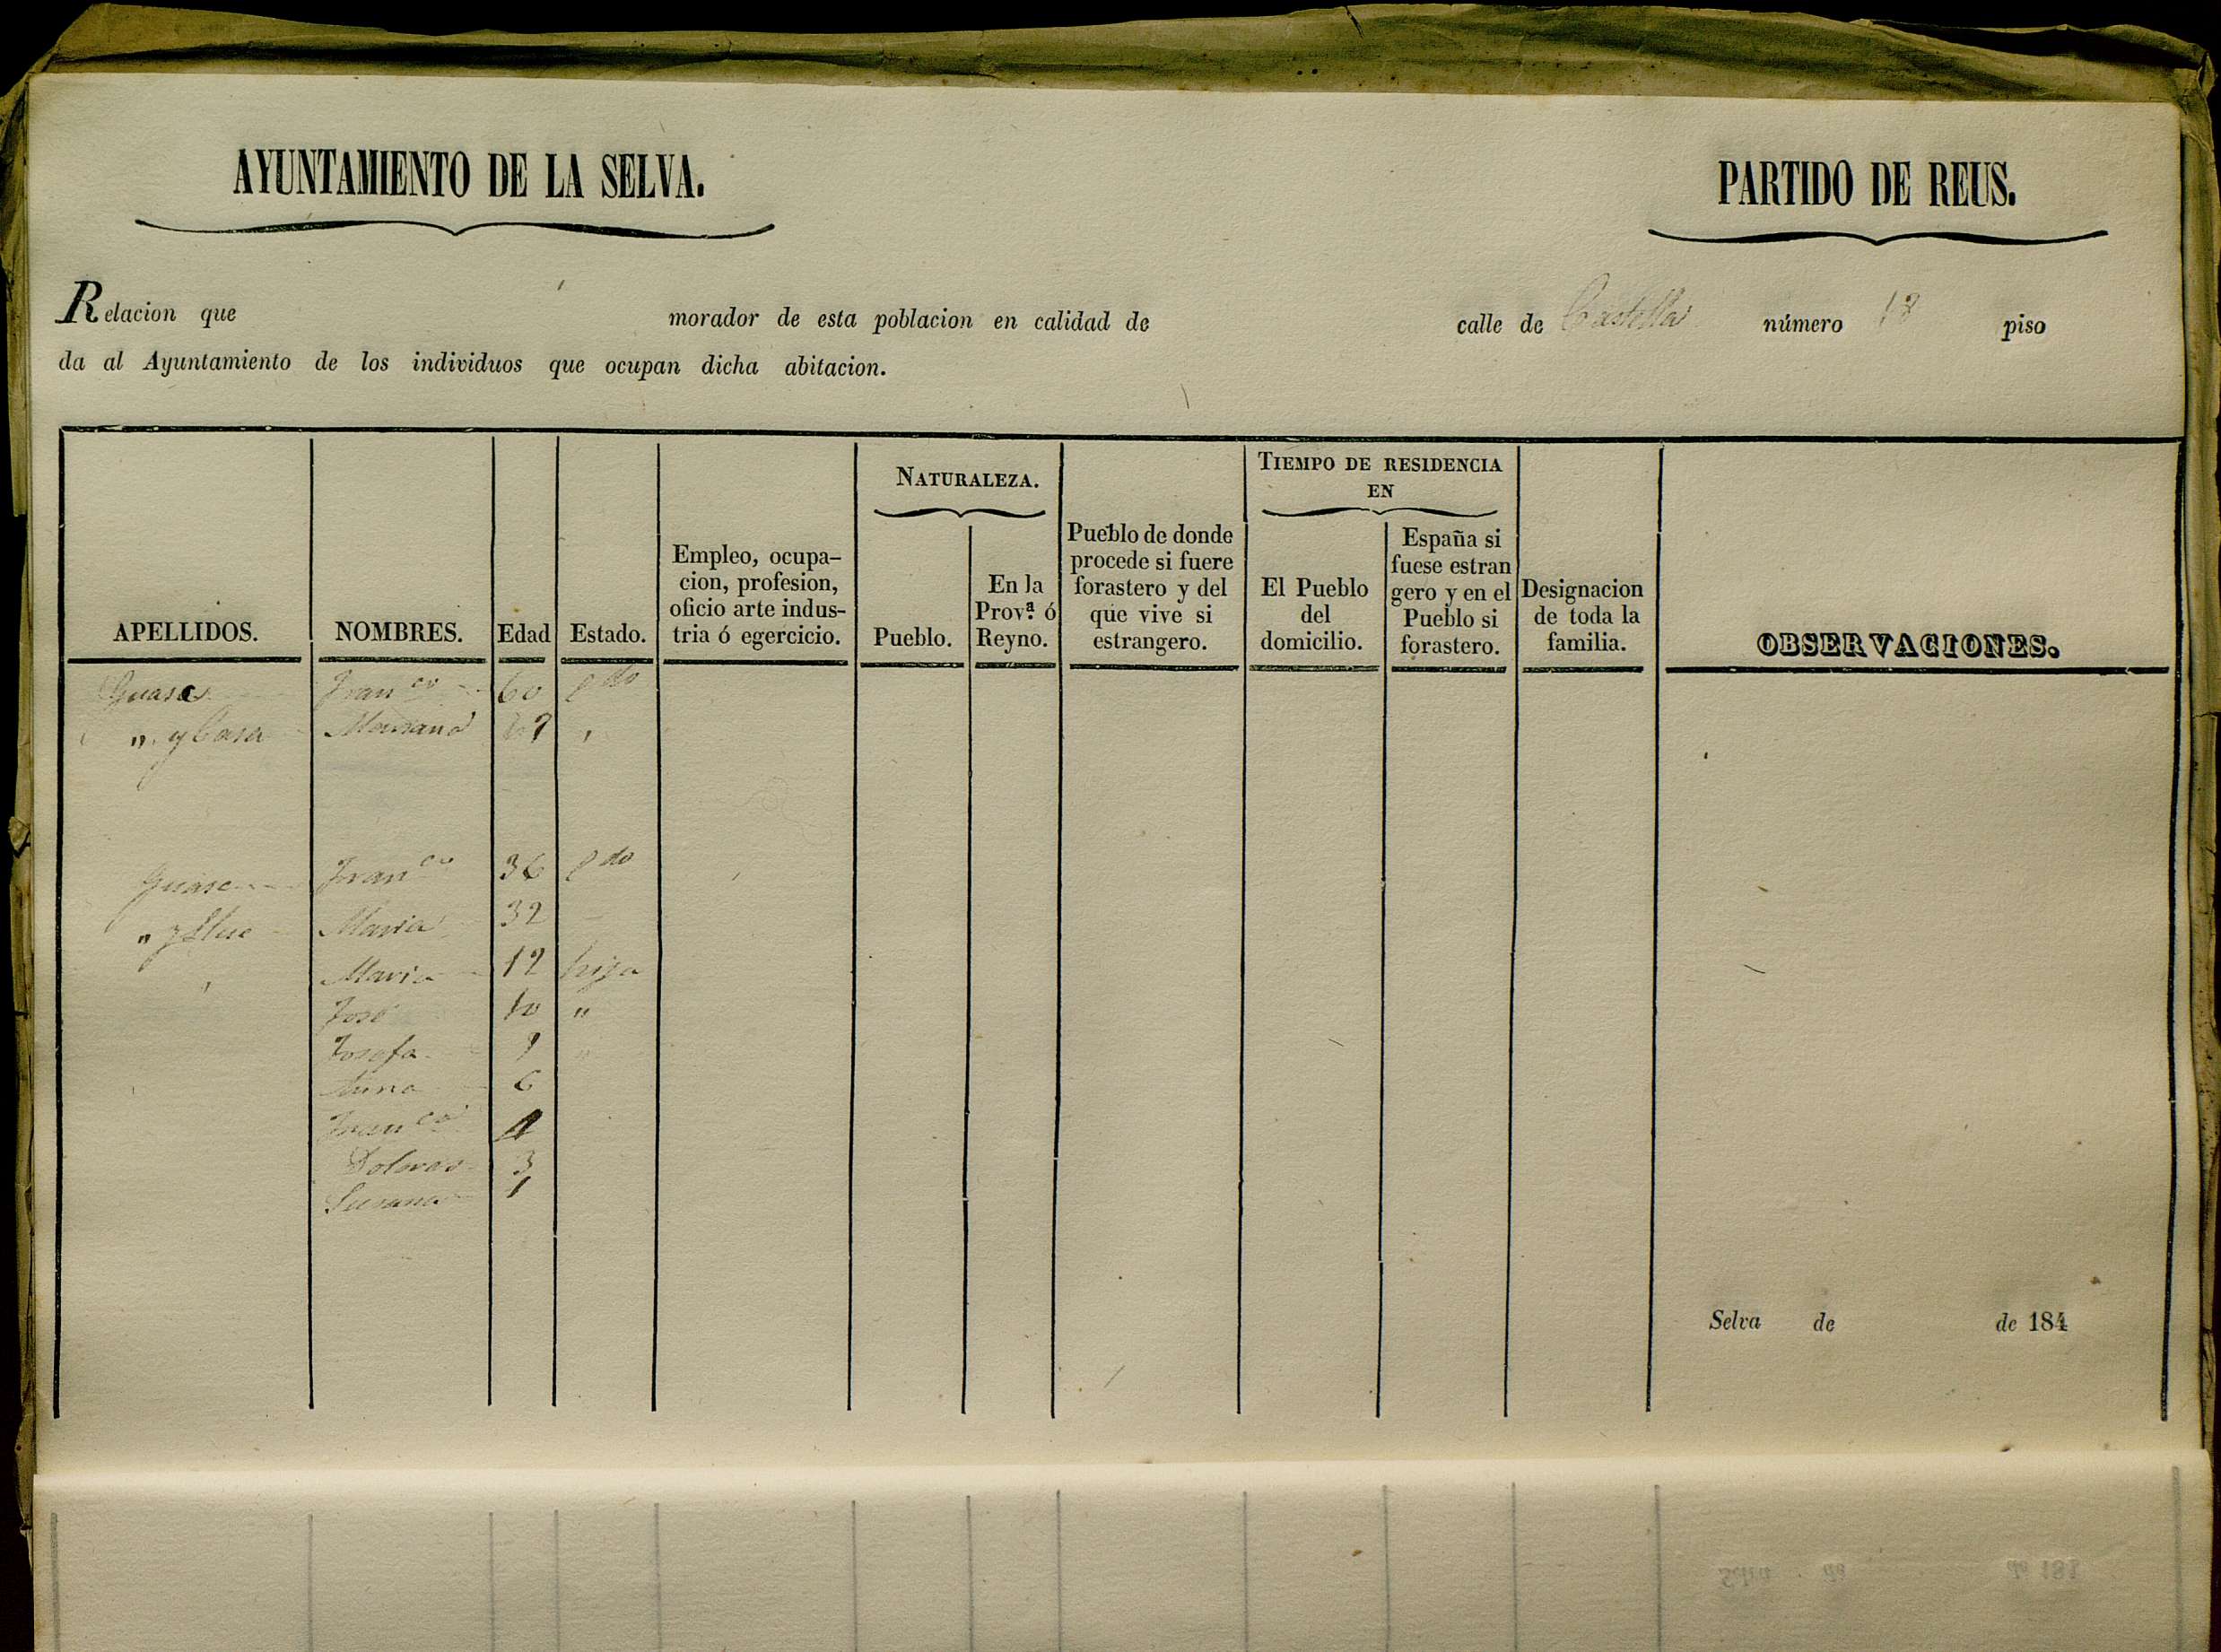 AYUNTAMIENTO DE LA SELVA.
PARTIDO DE REUS.
Relacion que morador de esta poblacion en calidad de calle de Castella número 18 piso
da al Ayuntamiento de los individuos que ocupan dicha abitacion.
APELLIDOS.
NOMBRES.
Edad
Estado.
Empleo, ocupa-
cion, profesion,
oficio arte indus-
tria ó egercicio.
NATURALEZA.
Pueblo.
En la
Prov.ª ó
Reyno.
Pueblo de donde
procede si fuere
forastero y del
que vive si
estrangero.
TIEMPO DE RESIDENCIA
EN
El Pueblo
del
domicilio.
España si
fuese estran
gero y en el
Pueblo si
forastero.
Designacion
de toda la
familia.
OBSERVACIONES.
Guasc Franco 60 cdo
" y Casa Mariana "
Guasc Franco 36 cdo
" y Lluc Maria 32
Maria 12 hija
José 10 "
Josefa 9 "
Anna 6
Franca 4
Dolores 3
Susana 1
Selva de de 184